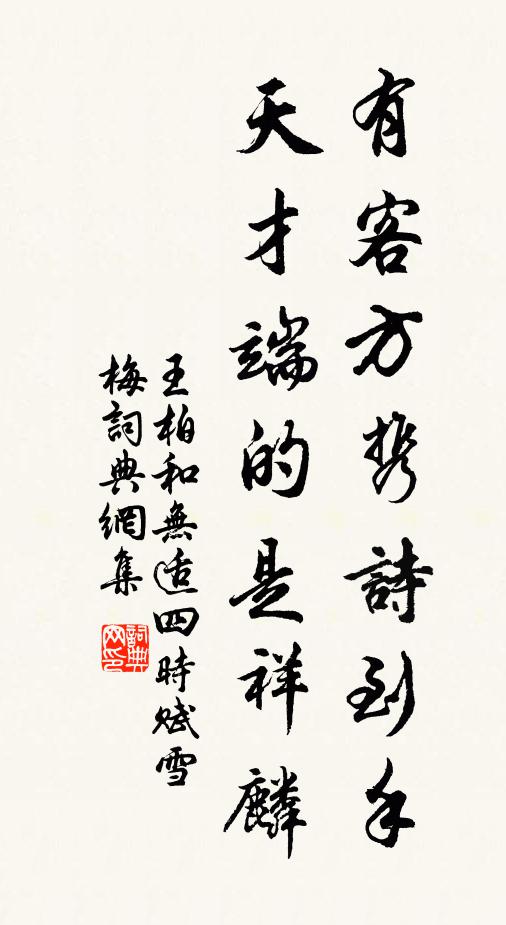 有客方携詩到手
天才端的是祥麟
王柏和無適四時賦雪
梅詞典網集
詞典网印